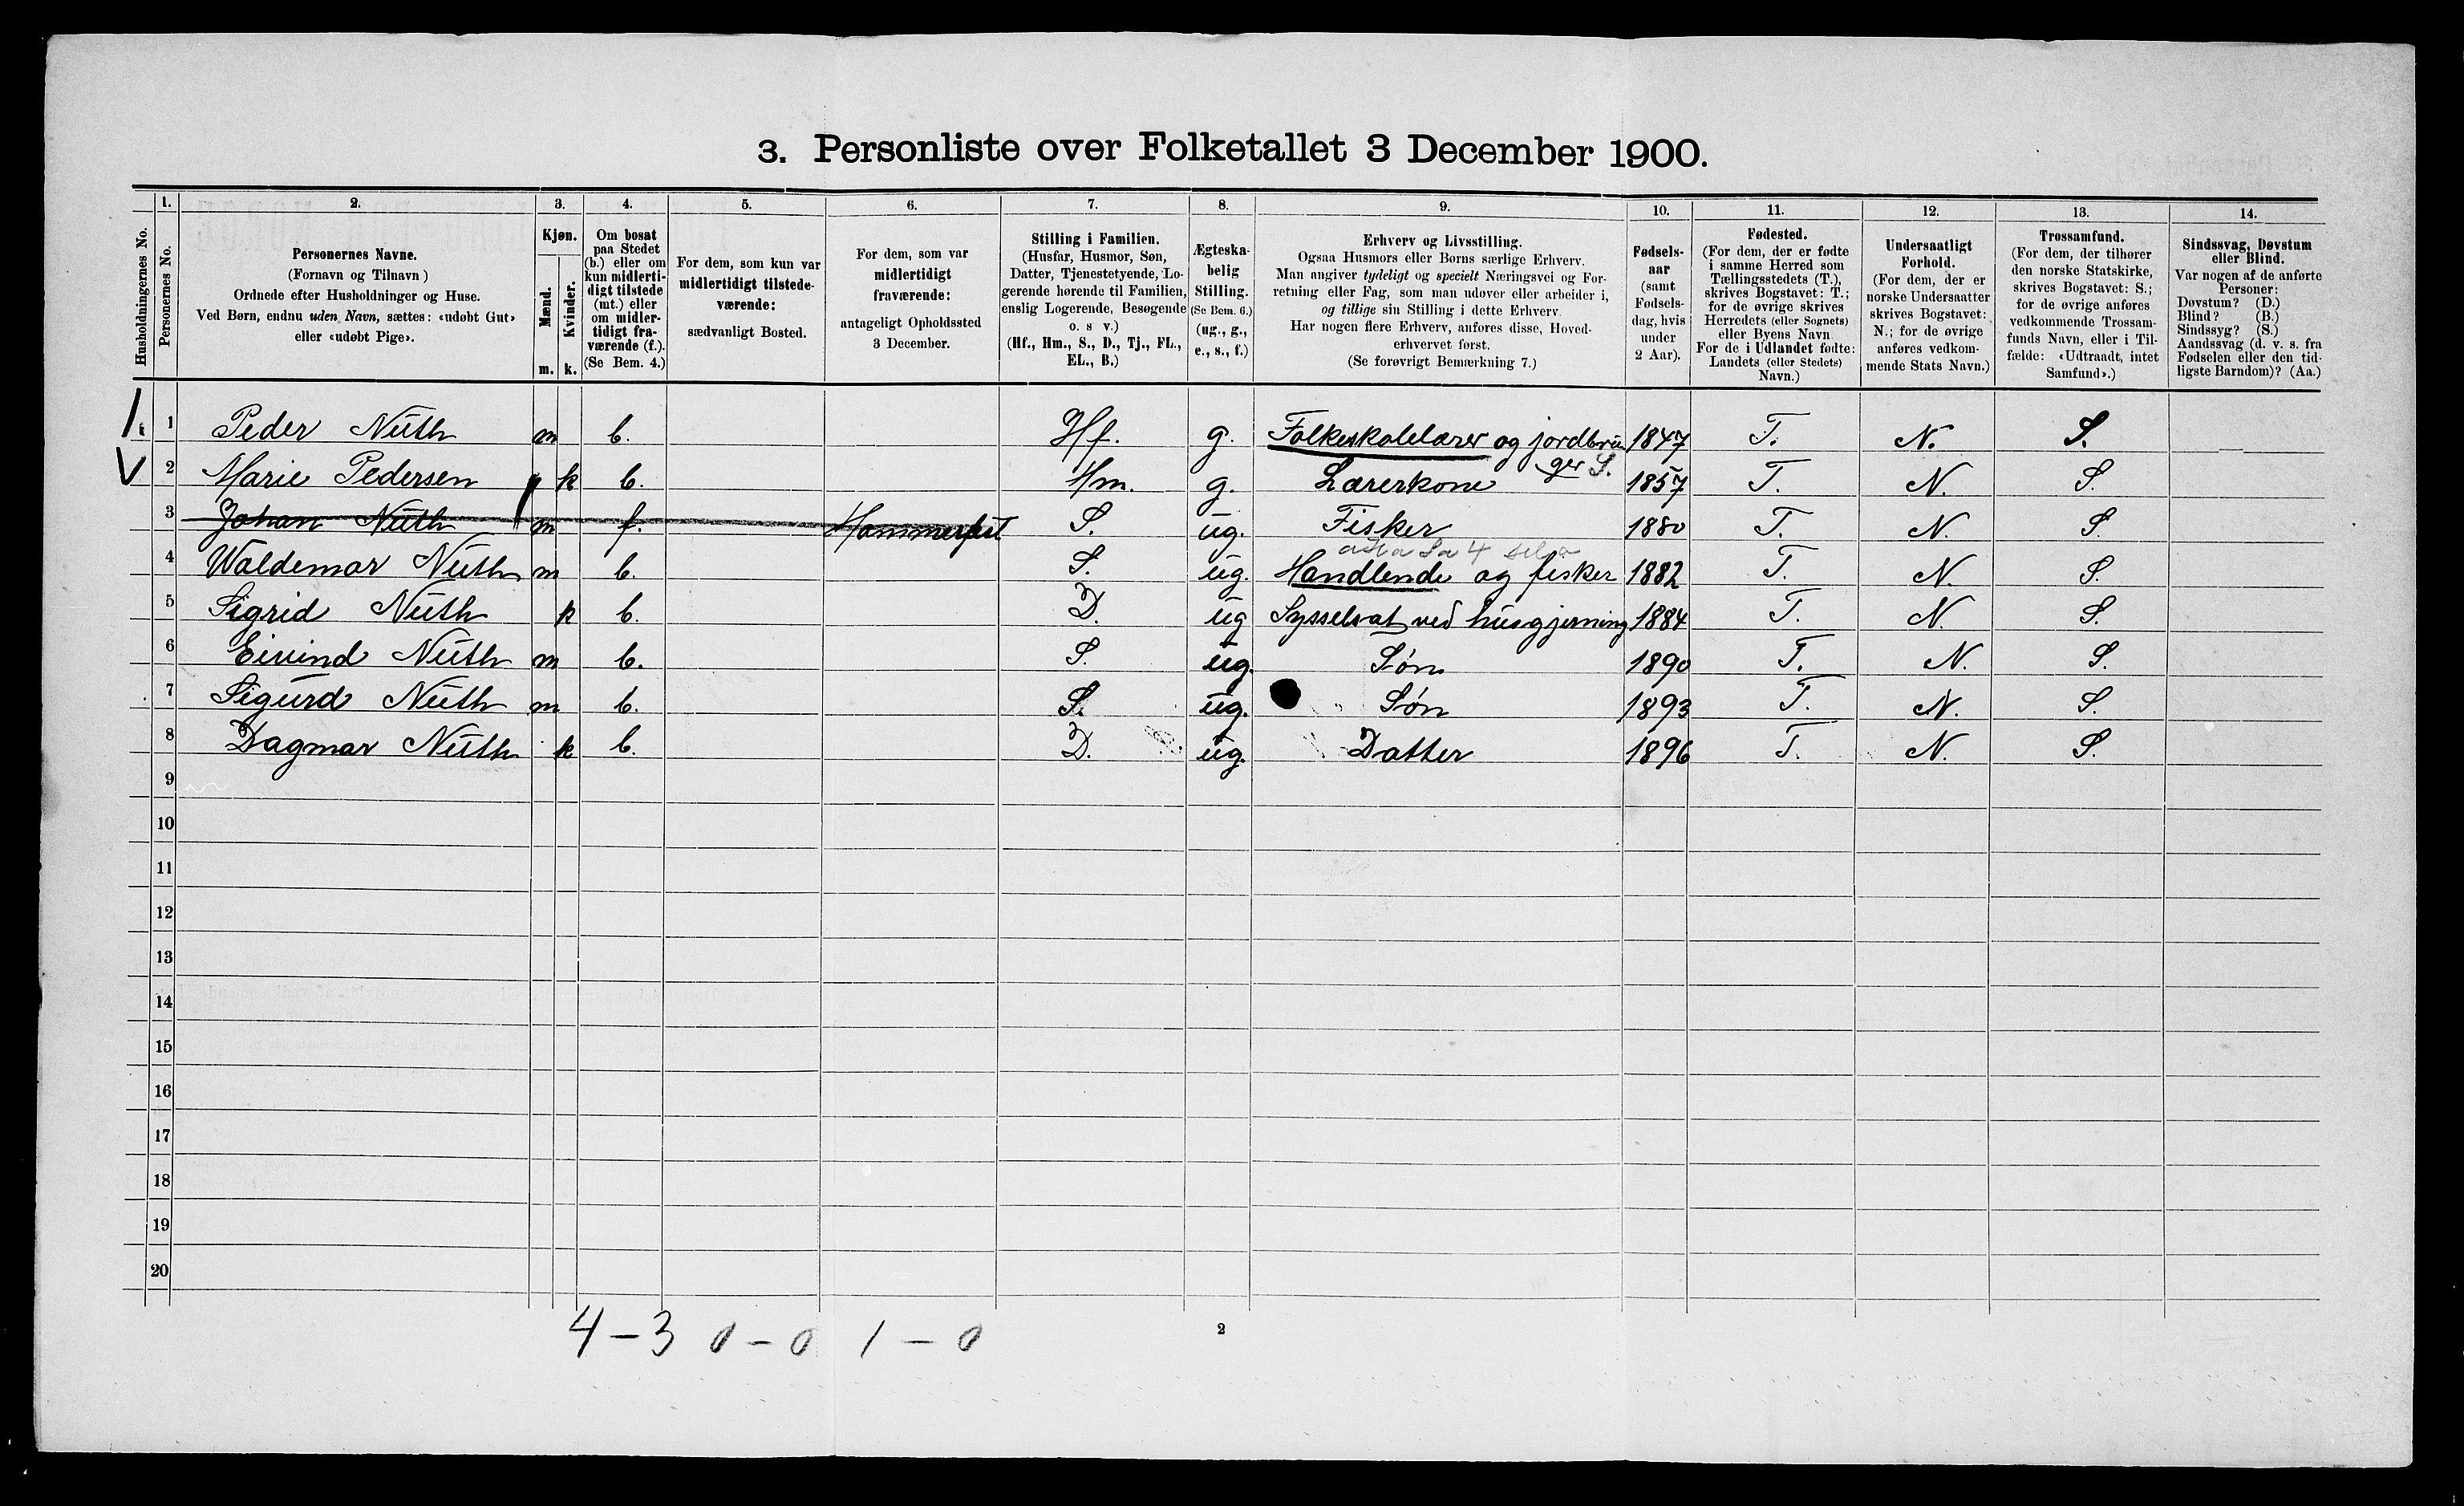 3. Personliste over Folketallet 3 December 1900.
Husholdningernes No.
1. Personernes No.
2. Personernes Navne.
(Fornavn og Tilnavn)
Ordnede efter Husholdninger og Huse.
Ved Børn, endnu uden Navn, sættes: «udøbt Gut»
eller «udøbt Pige».
3. Kjøn.
Mænd. m.
Kvinder. k.
4. Om bosat
paa Stedet
(b.) eller om
kun midlerti-
digt tilstede
(mt.) eller
om midler-
tidigt fra-
værende (f.).
(Se Bem. 4.)
5. For dem, som kun var
midlertidigt tilstede-
værende:
sædvanligt Bosted.
6. For dem, som var
midlertidigt
fraværende:
antageligt Opholdssted
3 December.
7. Stilling i Familien.
(Husfar, Husmor, Søn,
Datter, Tjenestetyende, Lo-
gerende hørende til Familien,
enslig Logerende, Besøgende
o. s v.)
(Hf., Hm., S., D., Tj., FL.,
EL., B.)
8. Ægteska-
belig
Stilling.
(Se Bem. 6.)
(ug., g.,
e., s., f.)
9. Erhverv og Livsstilling.
Ogsaa Husmors eller Børns særlige Erhverv.
Man angiver tydeligt og specielt Næringsvei og For-
retning eller Fag, som man udøver eller arbeider i,
og tillige sin Stilling i dette Erhverv.
Har nogen flere Erhverv, anføres disse, Hoved-
erhvervet først.
(Se forøvrigt Bemærkning 7.)
10. Fødsels-
aar
(samt
Fødsels-
dag, hvis
under
2 Aar).
11. Fødested.
(For dem, der er fødte
i samme Herred som
Tællingsstedets (T.),
skrives Bogstavet: T.;
for de øvrige skrives
Herredets (eller Sognets)
eller Byens Navn
For de i Udlandet fødte:
Landets (eller Stedets)
Navn.)
12. Undersaatligt
Forhold.
(For dem, der er
norske Undersaatter
skrives Bogstavet:
N.; for de øvrige
anføres vedkom-
mende Stats Navn.)
13. Trossamfund.
(For dem, der tilhører
den norske Statskirke,
skrives Bogstavet: S.;
for de øvrige anføres
vedkommende Trossam-
funds Navn, eller i Til-
fælde: «Udtraadt, intet
Samfund».)
14. Sindssvag, Døvstum
eller Blind.
Var nogen af de anførte
Personer:
Døvstum? (D.)
Blind? (B.)
Sindssyg? (S.)
Aandssvag (d. v. s. fra
Fødselen eller den tid-
ligste Barndom)? (Aa.)
1 Peder Nuth m b. Hf. g. Folkeskolelærer og jordbru 1847 T. N. S.
ger S.
2 Marie Pedersen k b. Hm. g. Lærerkone 1857 T. N. S.
3 Johan Nuth m f. Hammerfest S. ug. Fisker 1880 T. N. S.
4 Waldemar Nuth m b. S. ug. Handlende og fisker 1882 T. N. S.
5 Sigrid Nuth k b. D. ug Sysselsat ved husgjerning 1884 T. N. S.
6 Eivind Nuth m b. S. ug. Søn 1890 T. N. S.
7 Sigurd Nuth m b. S. ug. Søn 1893 T. N. S.
8 Dagmar Nuth k b. D. ug. Datter 1896 T. N. S.
9
10
11
12
13
14
15
16
17
18
19
20
4 – 3 0 – 0 1 – 0
2